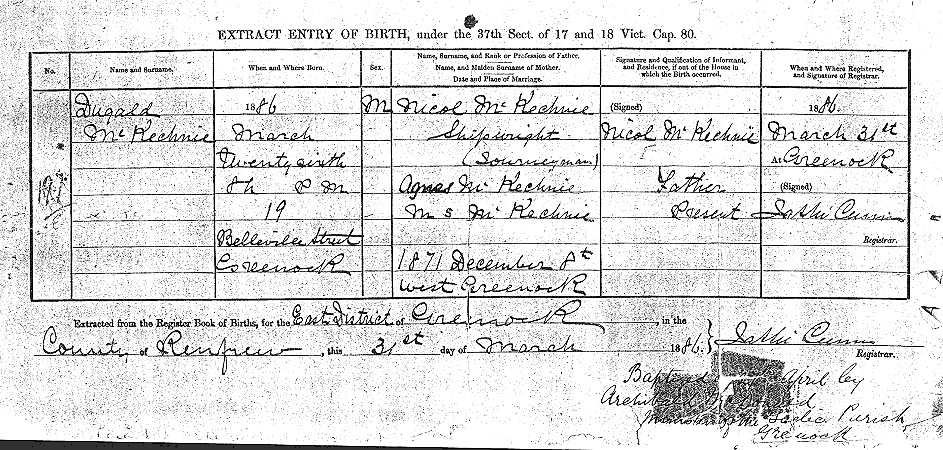 EXTRACT ENTRY OF BIRTH, under the 37th Sect. of 17 and 18 Vict. Cap. 80.
No.
Name and Surname.
When and Where Born.
Sex.
Name, Surname, and Rank or Profession of Father.
Name, and Maiden Surname of Mother.
Date and Place of Marriage.
Signature and Qualification of Informant,
and Residence, if out of the House in
which the Birth occurred.
When and Where Registered,
and Signature of Registrar.
Dugald
McKechnie
1886
March
Twenty sixth
8h P M
19
Belleville Street
Greenock
M
Nicol McKechnie
Shipwright
(Journeyman)
Agnes McKechnie
m s McKechnie
1871 December 8th
West Greenock
(Signed)
Nicol McKechnie
Father
Present
1886.
March 31st
At Greenock
(Signed)
Registrar.
Extracted from the Register Book of Births, for the East District of Greenock, in the
County of Renfrew, this 31st day of March 1886.
Registrar.
April by
Archibald
Parish,
Greenock